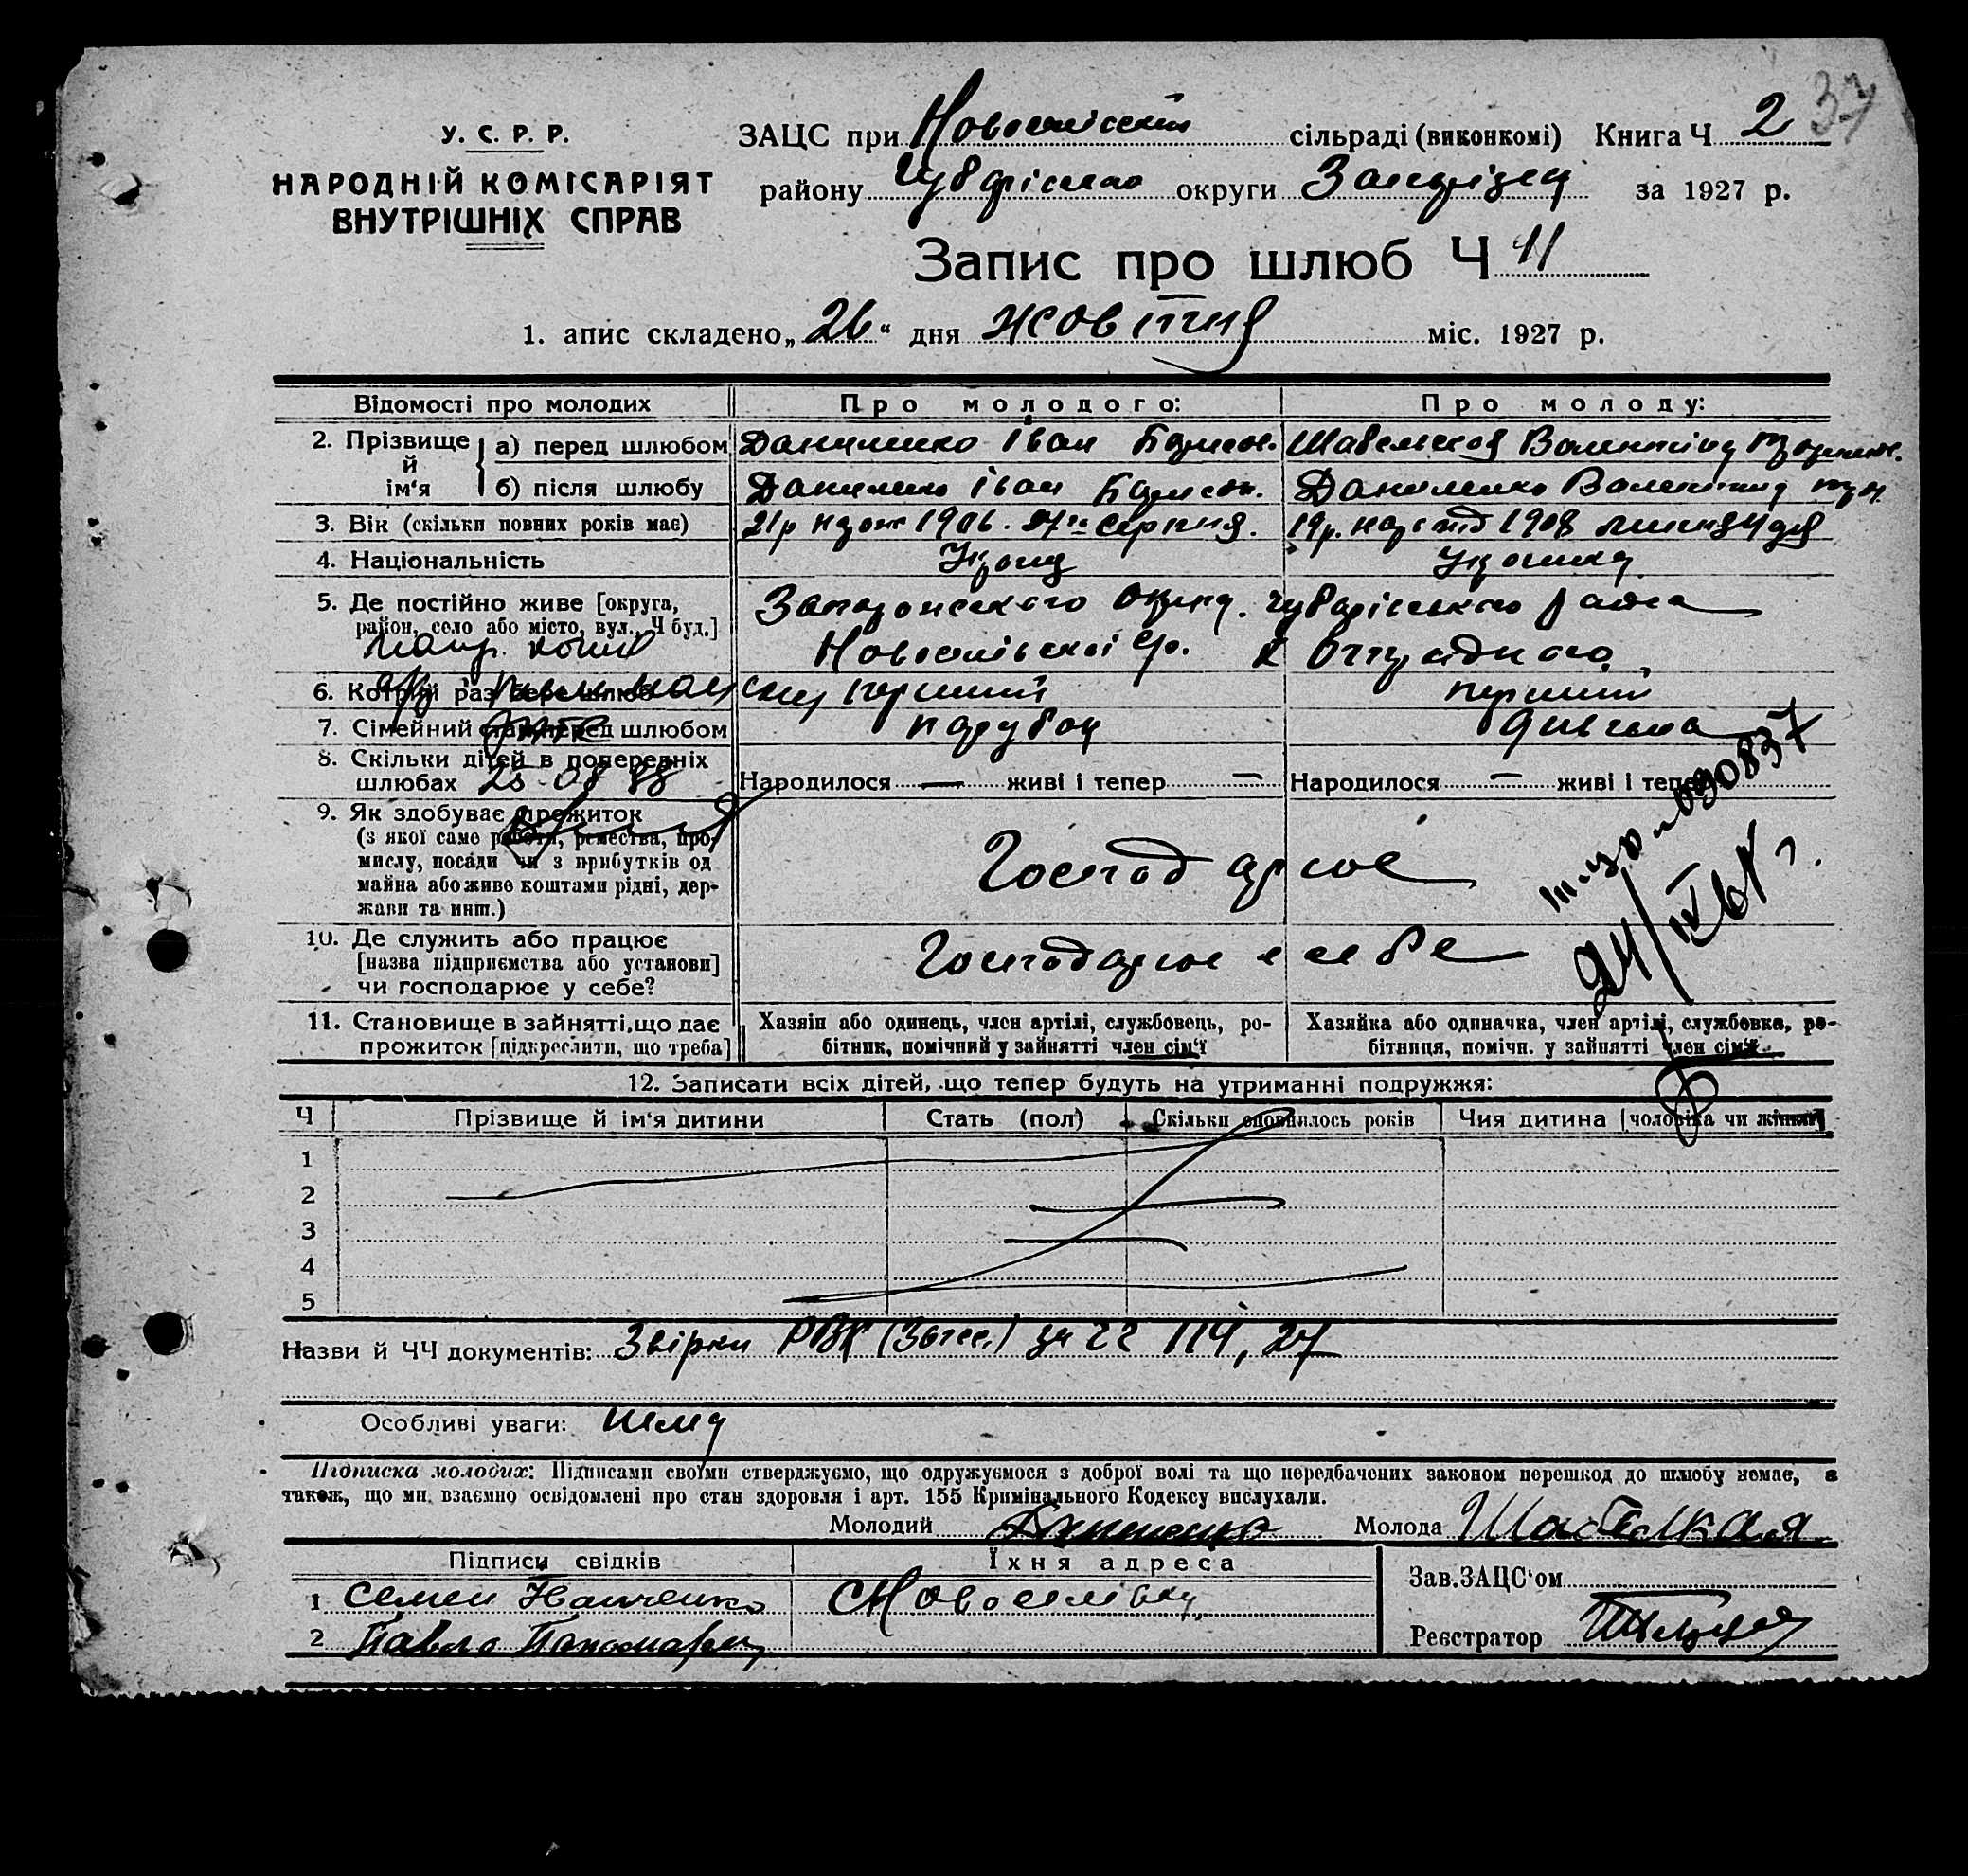 37
У. С. Р. Р.
НАРОДНІЙ КОМІСАРІЯТ
ВНУТРІШНІХ СПРАВ
ЗАЦС при Новоселівській сільраді (виконкомі) Книга Ч 2
району округи за 1927 р.
Запис про шлюб Ч 11
1. апис складено „26“ дня жовтня міс. 1927 р.
Відомості про молодих Про молодого: Про молоду:
2. Прізвище й ім‘я а) перед шлюбом Данилико Іван Шабельская Валентина
б) після шлюбу Данилико Іван Данилико Валентина
3. Вік (скільки повних років має) 21р 1906. серпня. 19р. 1908
4. Національність
5. Де постійно живе [округа, район, село або місто, вул., Ч буд.] Запоріжського Чубарівського района
Новоселівської с/р.
6. Котрий раз бере шлюб перший перший
7. Сімейний стан перед шлюбом парубок дивчина
8. Скільки дітей в попередніх шлюбах Народилося — живі і тепер — Народилося — живі і тепер
25-08 88
090837
9. Як здобуває прожиток
(з якої саме роботи, ремества, про-
мислу, посади чи з прибутків од
майна або живе коштами рідні, дер-
жави та инш.)
Господарює
10. Де служить або працює
[назва підприємства або установи]
чи господарює у себе?
Господарює в себе
11. Становище в зайнятті, що дає
прожиток [підкреслити, що треба]
Хазяін або одинець, член артілі, службовець, ро-
бітник, помічний у зайнятті член сім‘ї
Хазяйка або одиначка, член артілі, службовка, ро-
бітниця, помічн. у зайнятті член сім‘ї
12. Записати всіх дітей, що тепер будуть на утриманні подружжя:
Ч Прізвище й ім‘я дитини Стать (пол) Скільки сповнилось років Чия дитина [чоловіка чи жінки]
1
2
3
4
5
Назви й ЧЧ документів: РВК за 22 114, 27
Особливі уваги: нема
Підписка молодих: Підписами своїми стверджуємо, що одружуємося з доброї волі та що передбачених законом перешкод до шлюбу немає, а
також, що ми взаємно освідомлені про стан здоровля і арт. 155 Кримінального Кодексу вислухали.
Молодий Молода Шабелская
Підписи свідків Їхня адреса
Зав. ЗАЦС‘ом
1 Семен с Новоселівка
2 Павло
Реєстратор